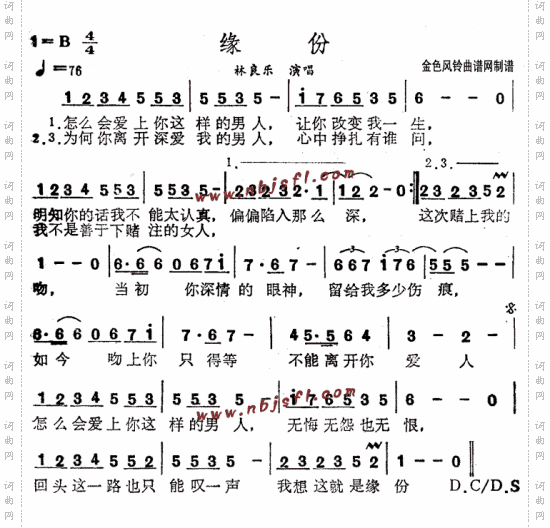 1=B 4/4
缘 份
♩=76
林良乐 演唱
金色风铃曲谱网制谱
1 2 3 4 5 5 3 | 5 5 3 5 - | i 7 6 5 3 5 | 6 - - 0 |
1.怎么会爱上你这样的男人, 让你改变我一生,
2.3.为何你离开深爱我的男人, 心中挣扎有谁问,
1. 2.3.
1 2 3 4 5 5 3 | 5 5 3 5 - | 2 3 2 3 2 · 1 | 1 2 2 - 0 :‖ 2 3 2 3 5 2 |
明知你的话我不能太认真, 偏偏陷入那么深, 这次赌上我的
我不是善于下赌注的女人,
1 - - 0 | 6 · 6 6 0 6 7 i | 7 · 6 7 - | 6 6 7 i 7 6 | 5 5 5 - - |
吻, 当初 你深情的眼神, 留给我多少伤痕,
6 · 6 6 0 6 7 i | 7 · 6 7 - | 4 5 · 5 6 4 | 3 - 2 - |
如今 吻上你只得等 不能离开你爱人
1 2 3 4 5 5 3 | 5 5 3 5 - | i 7 6 5 3 5 | 6 - - 0 |
怎么会爱上你这样的男人, 无悔无怨也无恨,
1 2 3 4 5 5 2 | 5 5 3 5 - | 2 3 2 3 5 2 | 1 - - 0 ‖
回头这一路也只能叹一声 我想这就是缘份 D.C/D.S
www.nbjsfl.com
www.nbjsfl.com
词曲网
词曲网
词曲网
词曲网
词曲网
词曲网
词曲网
词曲网
词曲网
词曲网
词曲网
词曲网